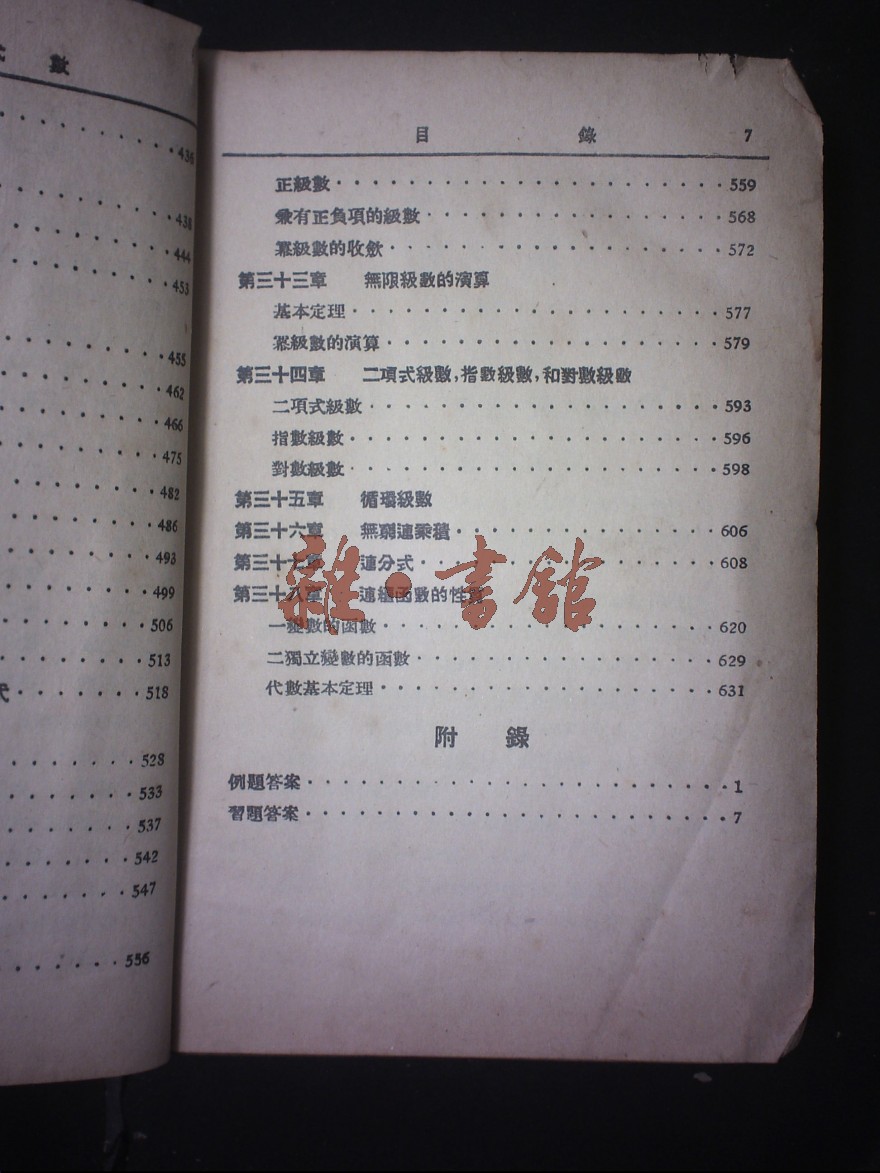 式 數
436
438
444
453
455
462
466
475
482
486
493
499
506
513
518
528
533
537
542
547
556
目 錄 7
正級數 559
兼有正負項的級數 568
冪級數的收歛 572
第三十三章 無限級數的演算
基本定理 577
冪級數的演算 579
第三十四章 二項式級數,指數級數,和對數級數
二項式級數 593
指數級數 596
對數級數 598
第三十五章 循環級數
第三十六章 無窮連乘積 606
第三十七章 連分式 608
第三十八章 連續函數的性質
一變數的函數 620
二獨立變數的函數 629
代數基本定理 631
附 錄
例題答案 1
習題答案 7
雜·書館